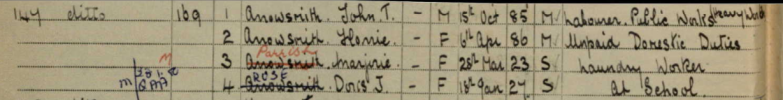 147 ditto 169 1 Arrowsmith. John. T. - M 15th Oct 85 M Labourer. Public Works Heavy Work
2 Arrowsmith. Florrie. - F 6th Apr 86 M Unpaid Domestic Duties
Parrish
3 Arrowsmith. Marjorie. - F 28th Mar 23 S Laundry Worker
ROSE
4 Arrowsmith. Doris J. - F 18th Jan 27 S At School.